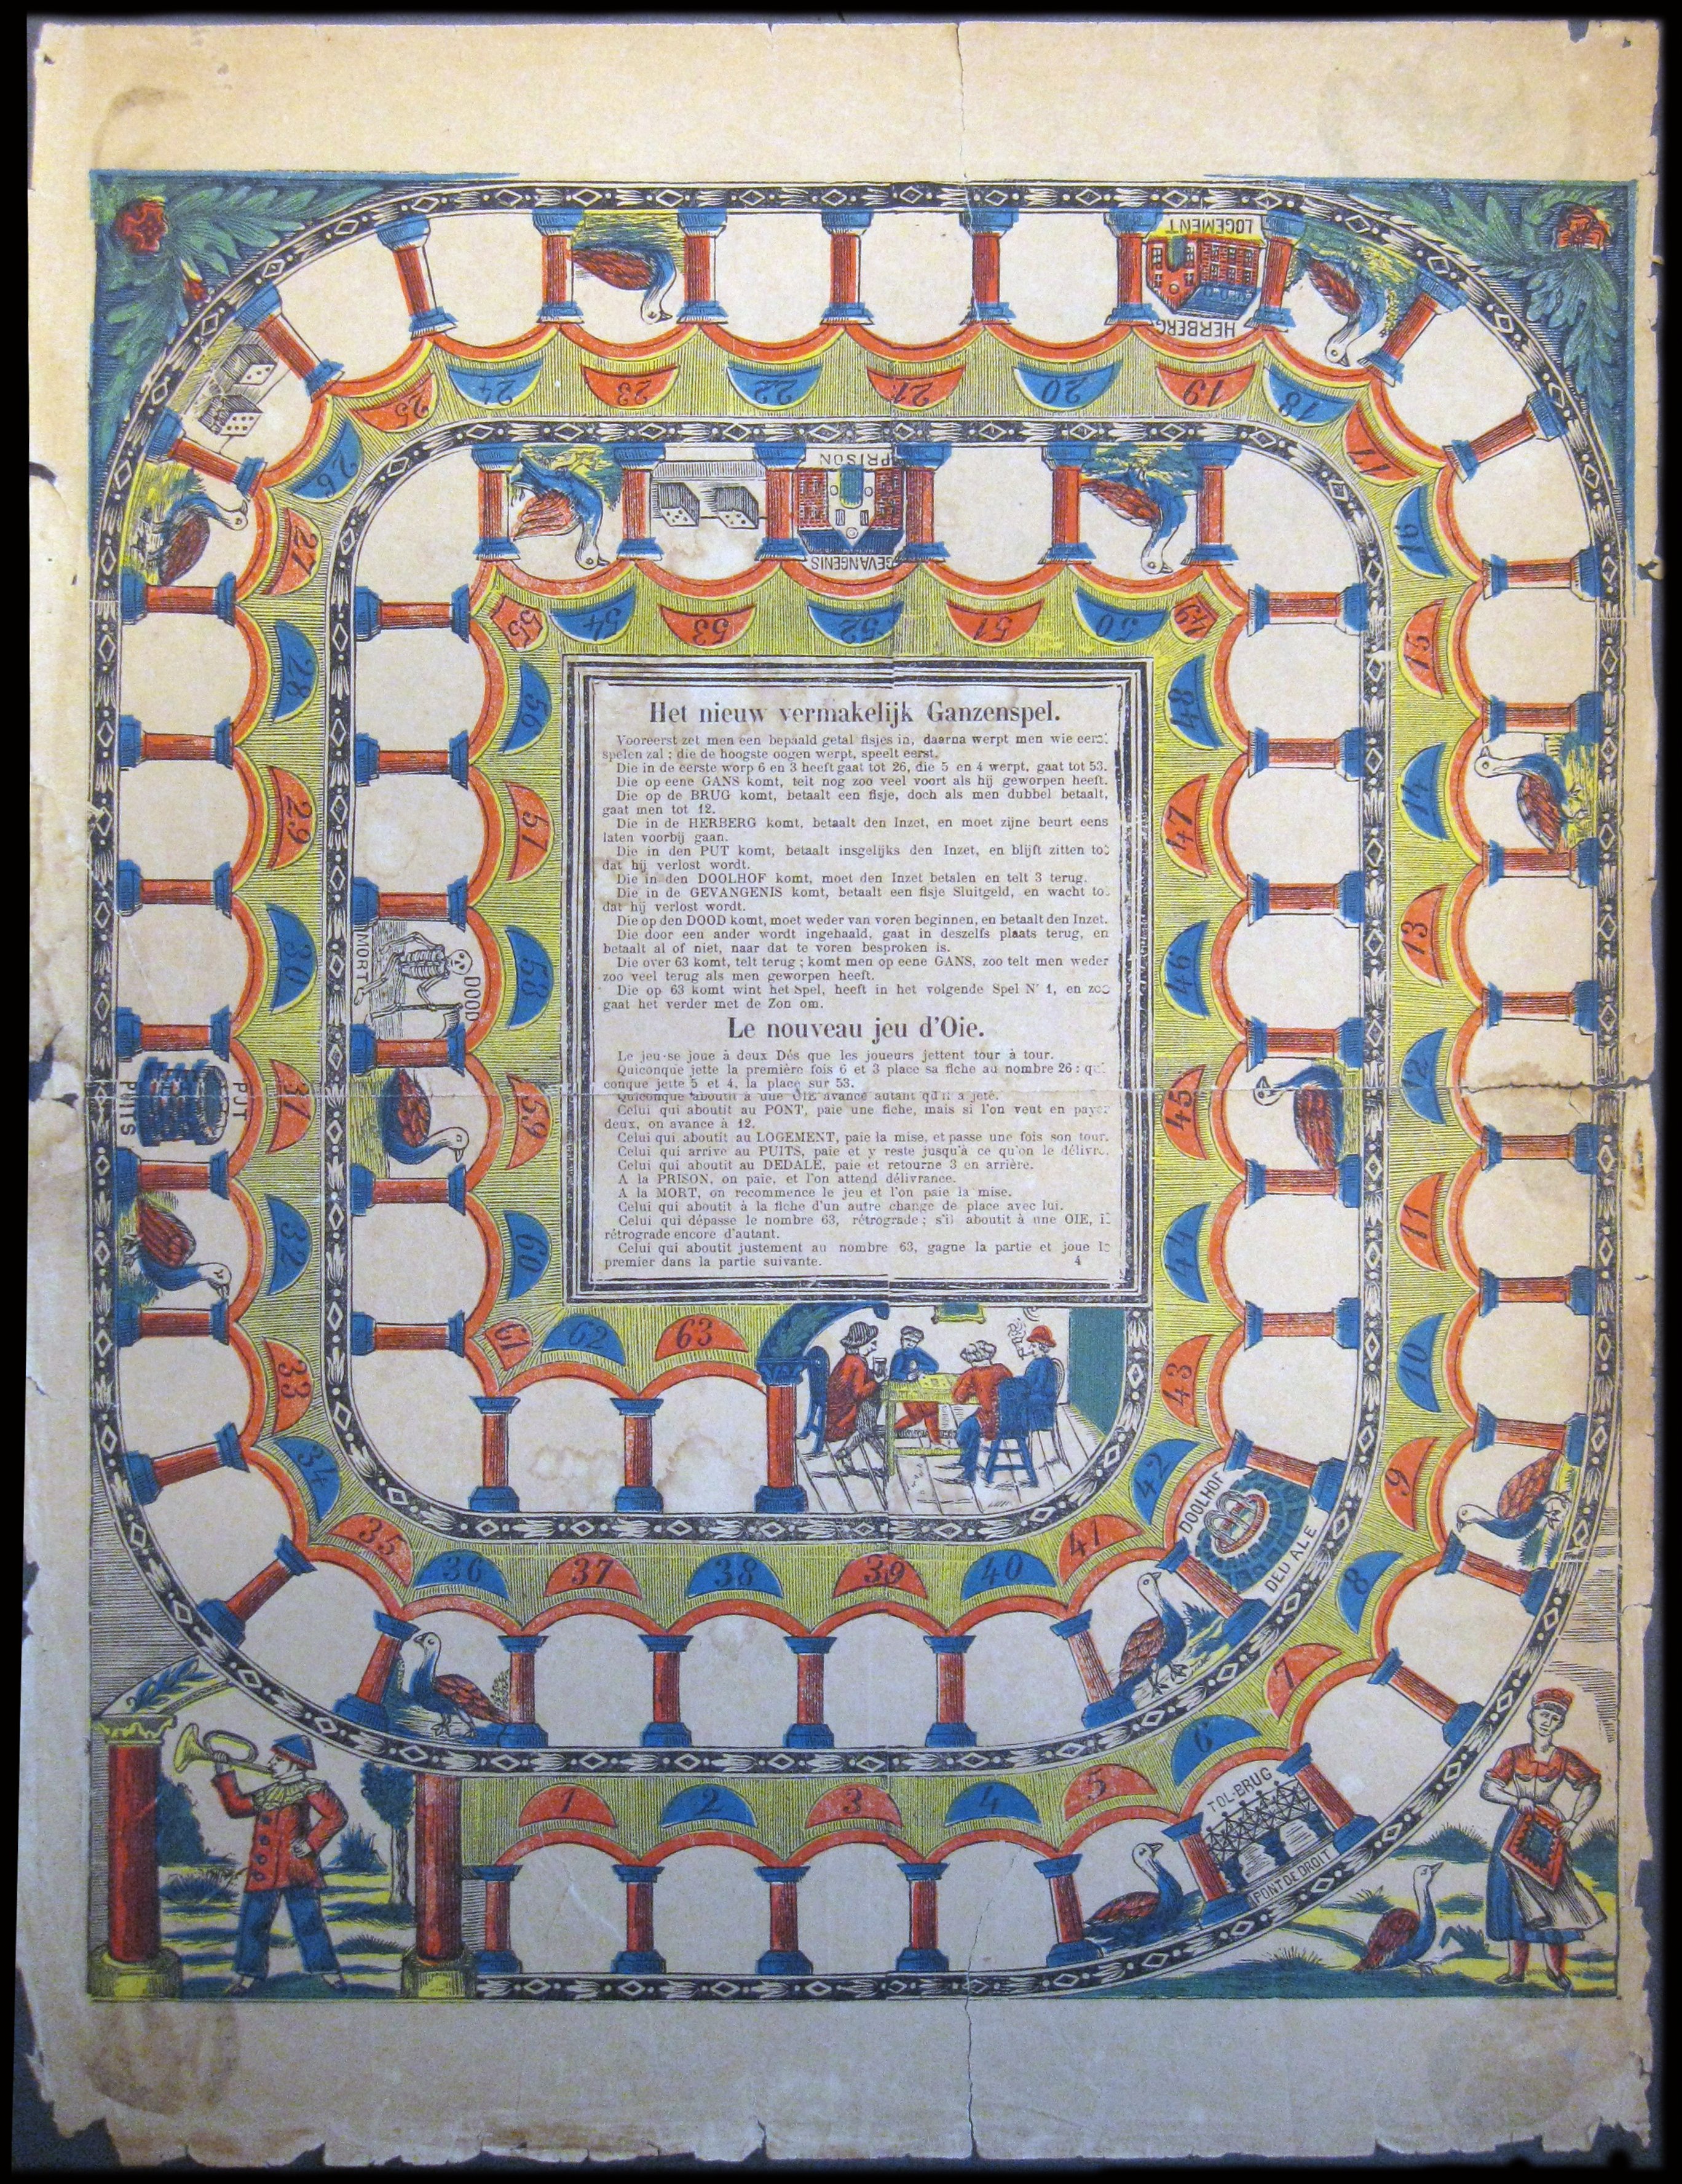 Het nieuw vermakelijk Ganzenspel.
Vooreerst zet men een bepaald getal fisjes in, daarna werpt men wie eerst
spelen zal ; die de hoogste oogen werpt, speelt eerst.
Die in de eerste worp 6 en 3 heeft gaat tot 26, die 5 en 4 werpt, gaat tot 53.
Die op eene GANS komt, telt nog zoo veel voort als hij geworpen heeft.
Die op de BRUG komt, betaalt een fisje, doch als men dubbel betaalt,
gaat men tot 12.
Die in de HERBERG komt, betaalt den Inzet, en moet zijne beurt eens
laten voorbij gaan.
Die in den PUT komt, betaalt insgelijks den Inzet, en blijft zitten tot
dat hij verlost wordt.
Die in den DOOLHOF komt, moet den Inzet betalen en telt 3 terug.
Die in de GEVANGENIS komt, betaalt een fisje Sluitgeld, en wacht to
dat hij verlost wordt.
Die op den DOOD komt, moet weder van voren beginnen, en betaalt den Inzet.
Die door een ander wordt ingehaald, gaat in deszelfs plaats terug, en
betaalt al of niet, naar dat te voren besproken is.
Die over 63 komt, telt terug ; komt men op eene GANS, zoo telt men weder
zoo veel terug als men geworpen heeft.
Die op 63 komt wint het Spel, heeft in het volgende Spel N' 1, en zoo
gaat het verder met de Zon om.
Le nouveau jeu d'Oie.
Le jeu se joue à deux Dés que les joueurs jettent tour à tour.
Quiconque jette la première fois 6 et 3 place sa fiche au nombre 26 : qui
conque jette 5 et 4, la place sur 53.
Quiconque aboutit à une OIE avance autant qu'il a jeté.
Celui qui aboutit au PONT, paie une fiche, mais si l'on veut en payer
deux, on avance à 12.
Celui qui aboutit au LOGEMENT, paie la mise, et passe une fois son tour.
Celui qui arrive au PUITS, paie et y reste jusqu'à ce qu'on le délivre.
Celui qui aboutit au DEDALE, paie et retourne 3 en arrière.
A la PRISON, on paie, et l'on attend délivrance.
A la MORT, on recommence le jeu et l'on paie la mise.
Celui qui aboutit à la fiche d'un autre change de place avec lui.
Celui qui dépasse le nombre 63, rétrograde ; s'il aboutit à une OIE, il
rétrograde encore d'autant.
Celui qui aboutit justement au nombre 63, gagne la partie et joue le
premier dans la partie suivante.
4
1
2
3
4
5
6
TOL-BRUG
PONT DE DROIT
7
8
9
10
11
12
13
14
15
16
17
18
19
HERBERG
LOGEMENT
20
21
22
23
24
25
26
27
28
29
30
31
PUT
PUITS
32
33
34
35
36
37
38
39
40
41
42
DOOLHOF
DEDALE
43
44
45
46
47
48
49
50
51
52
GEVANGENIS
PRISON
53
54
55
56
57
58
DOOD
MORT
59
60
61
62
63